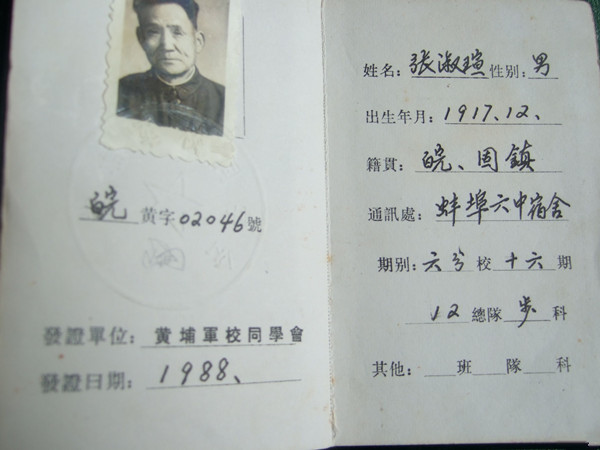 皖 黄字02046號
發證單位: 黄埔軍校同學會
發證日期: 1988、
姓名: 張淑瑄 性別: 男
出生年月: 1917.12、
籍貫: 皖、固鎮
通訊處: 蚌埠六中宿舍
期别: 六分校十六期
12總隊步科
其他: 班 隊 科